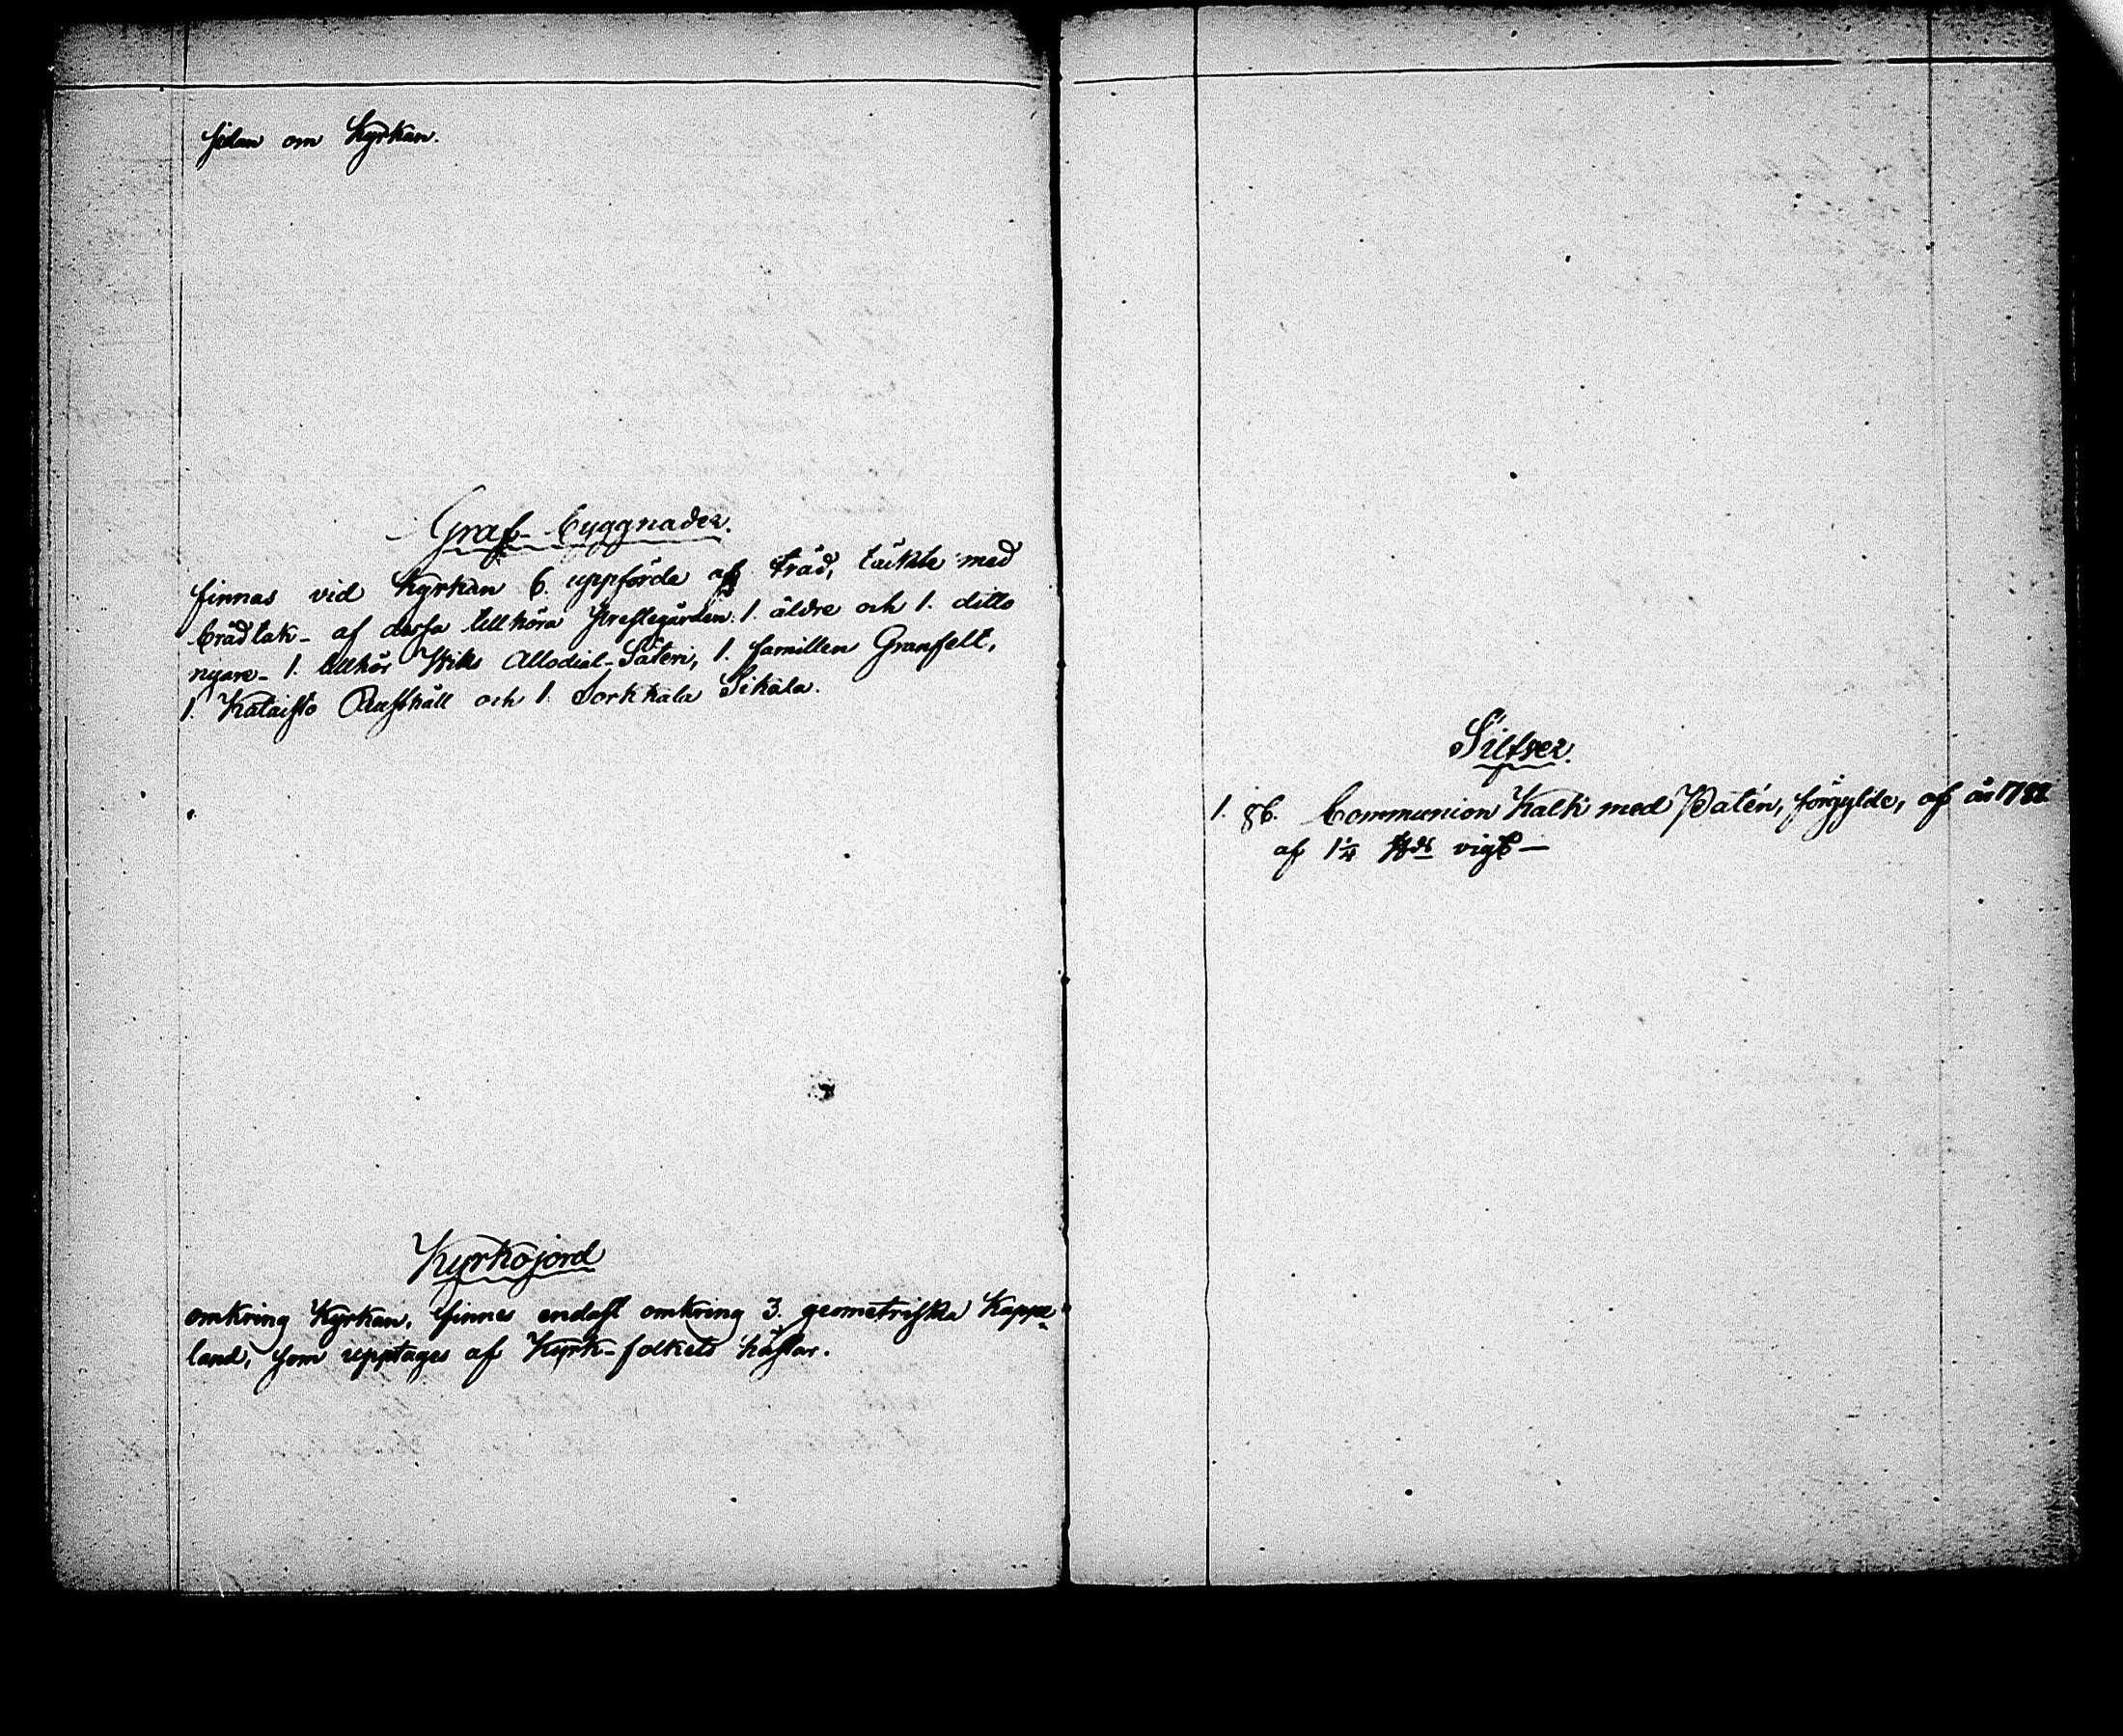 sidan om Kyrkan.
Graf-byggnader.
finnas vid Kyrkan 6. uppförde af träd, täckte med
brädtak- af dessa tillhöra Prestegården 1. äldre och 1. ditto
nyare- 1. tillhör Wiks Allodial-Säteri, 1. familien Granfelt,
1. Kataisto Rusthåll och 1. Sorkkala Sikala.
Kyrkojord
omkring Kyrkan, finnes endast omkring 3. geometriska Kappe-
land, som upptages af Kyrk-folkets hästar.
Silfver.
1. st. Communion Kalk med Patén, förgylde, af år
af 1¼ vigt—